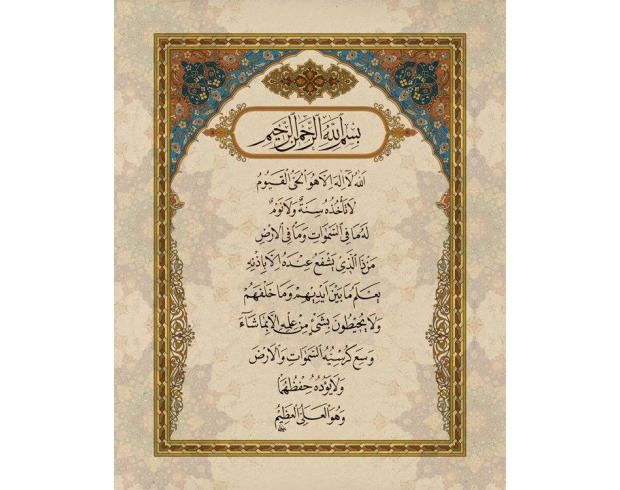 بِسْمِ اللهِ الرَّحْمٰنِ الرَّحِيمِ
اَللهُ لَا اِلٰهَ اِلَّا هُوَ الْحَيُّ الْقَيُّومُ
لَا تَأْخُذُهُ سِنَةٌ وَلَا نَوْمٌ
لَهُ مَا فِي السَّمٰوَاتِ وَمَا فِي الْاَرْضِ
مَنْ ذَا الَّذِي يَشْفَعُ عِنْدَهُ اِلَّا بِاِذْنِهِ
يَعْلَمُ مَا بَيْنَ اَيْدِيهِمْ وَمَا خَلْفَهُمْ
وَلَا يُحِيطُونَ بِشَيْءٍ مِنْ عِلْمِهِ اِلَّا بِمَا شَاءَ
وَسِعَ كُرْسِيُّهُ السَّمٰوَاتِ وَالْاَرْضَ
وَلَا يَؤُدُهُ حِفْظُهُمَا
وَهُوَ الْعَلِيُّ الْعَظِيمُ